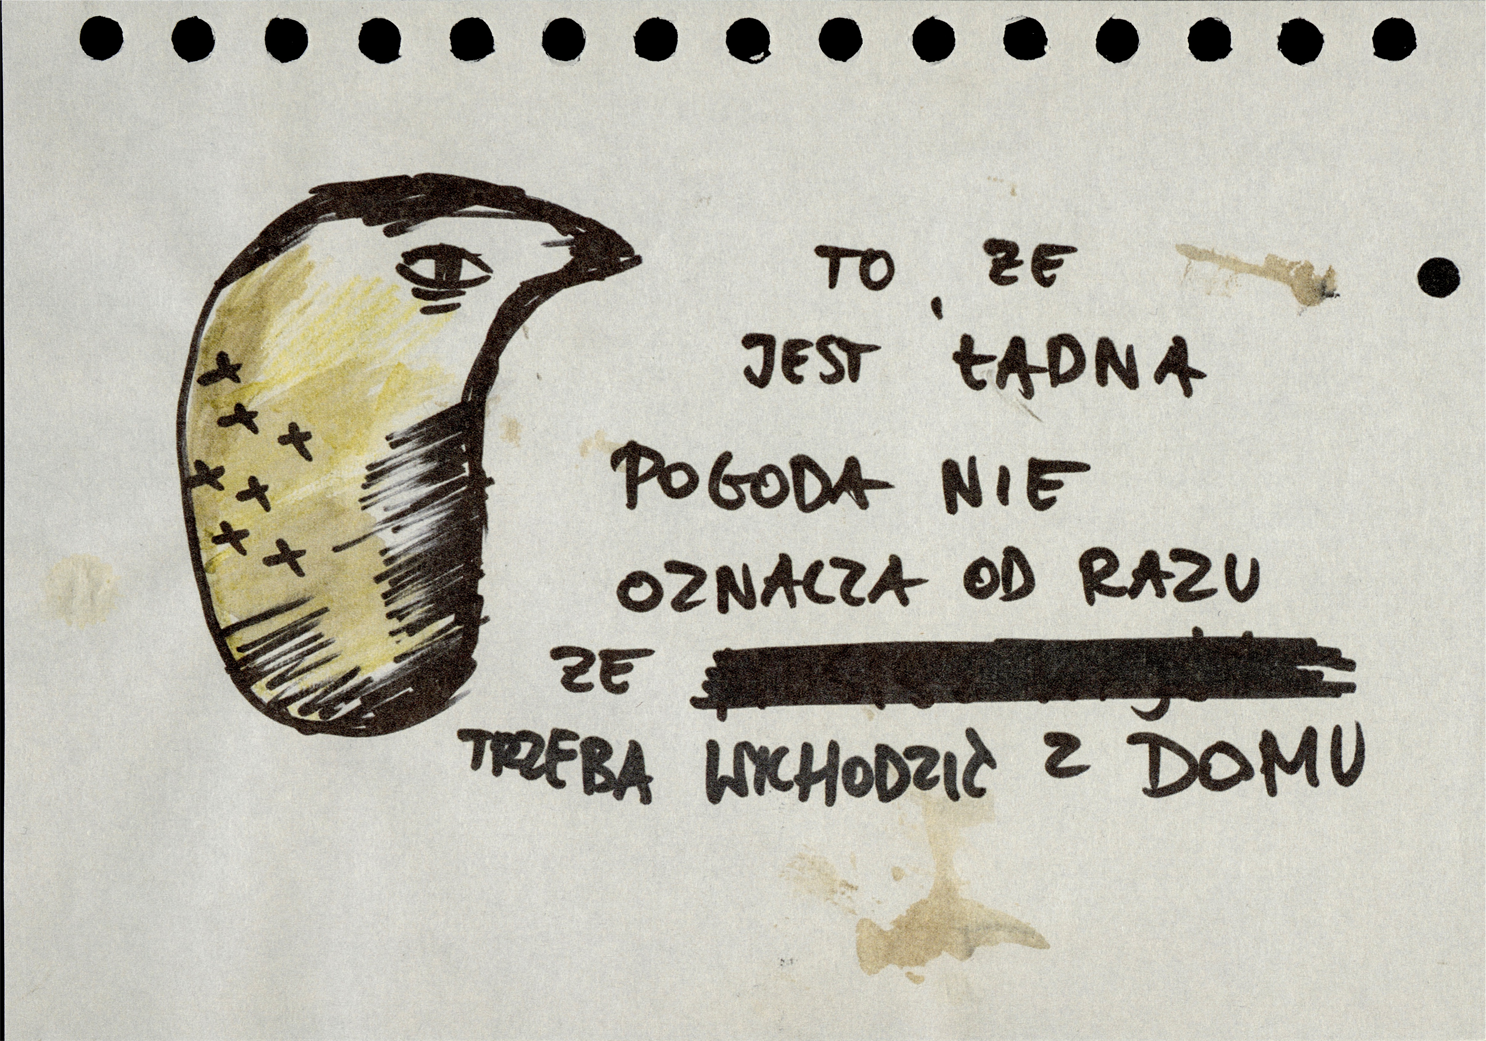 TO, ZE
JEST ŁADNA
POGODA NIE
OZNACZA OD RAZU
ZE
TRZEBA WYCHODZIĆ Z DOMU